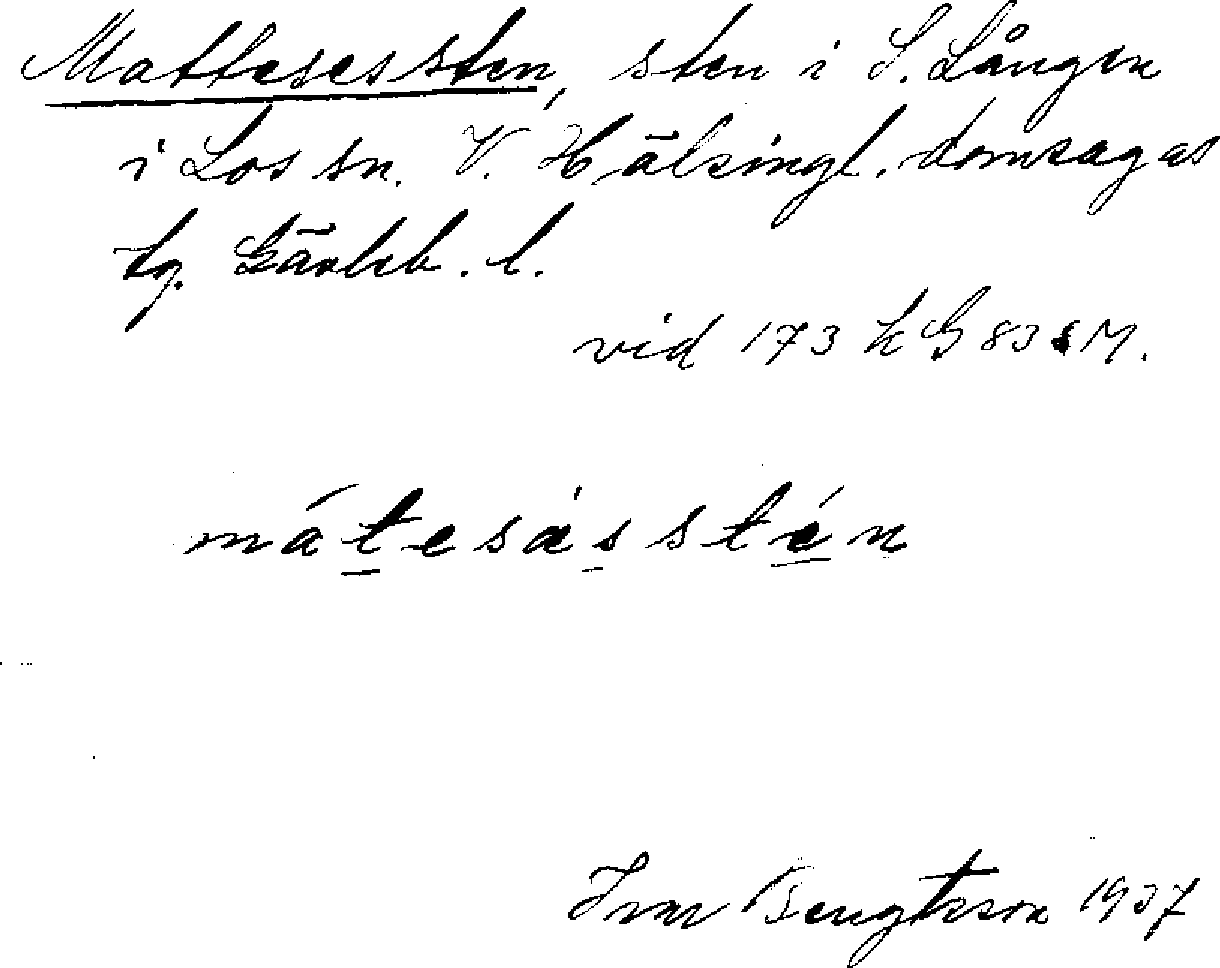 Mattesessten, sten i S. Lången
i Los sn. V. Hälsingl. domsagas
tg. Gävleb. l.
vid 173 k G 83 M.
mátesásstén
Ivar Bengtsson 1937